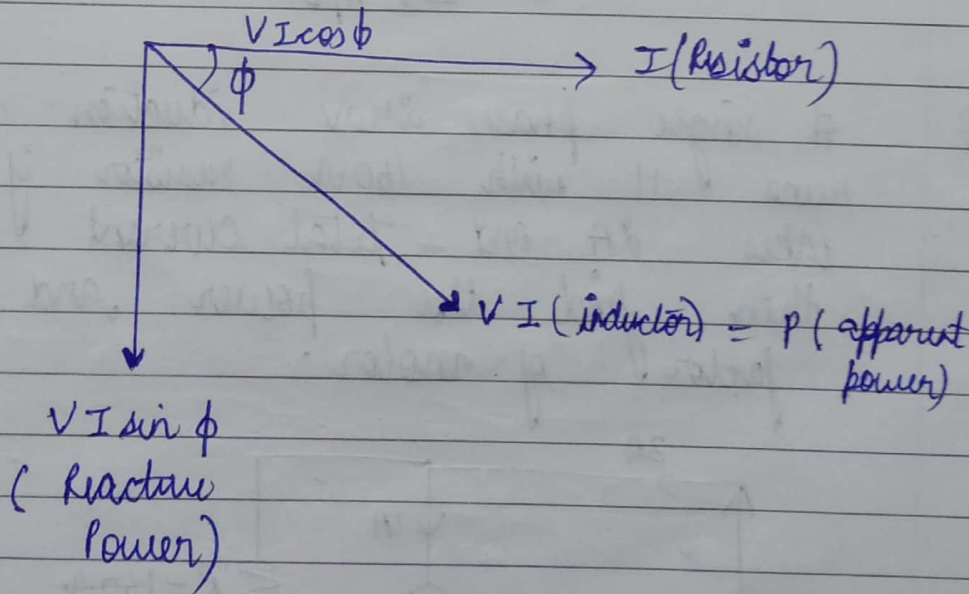 VI cos ϕ
I (Resistor)
ϕ
V I (inductor) = P (apparent
power)
VI sin ϕ
( Reactive
Power)